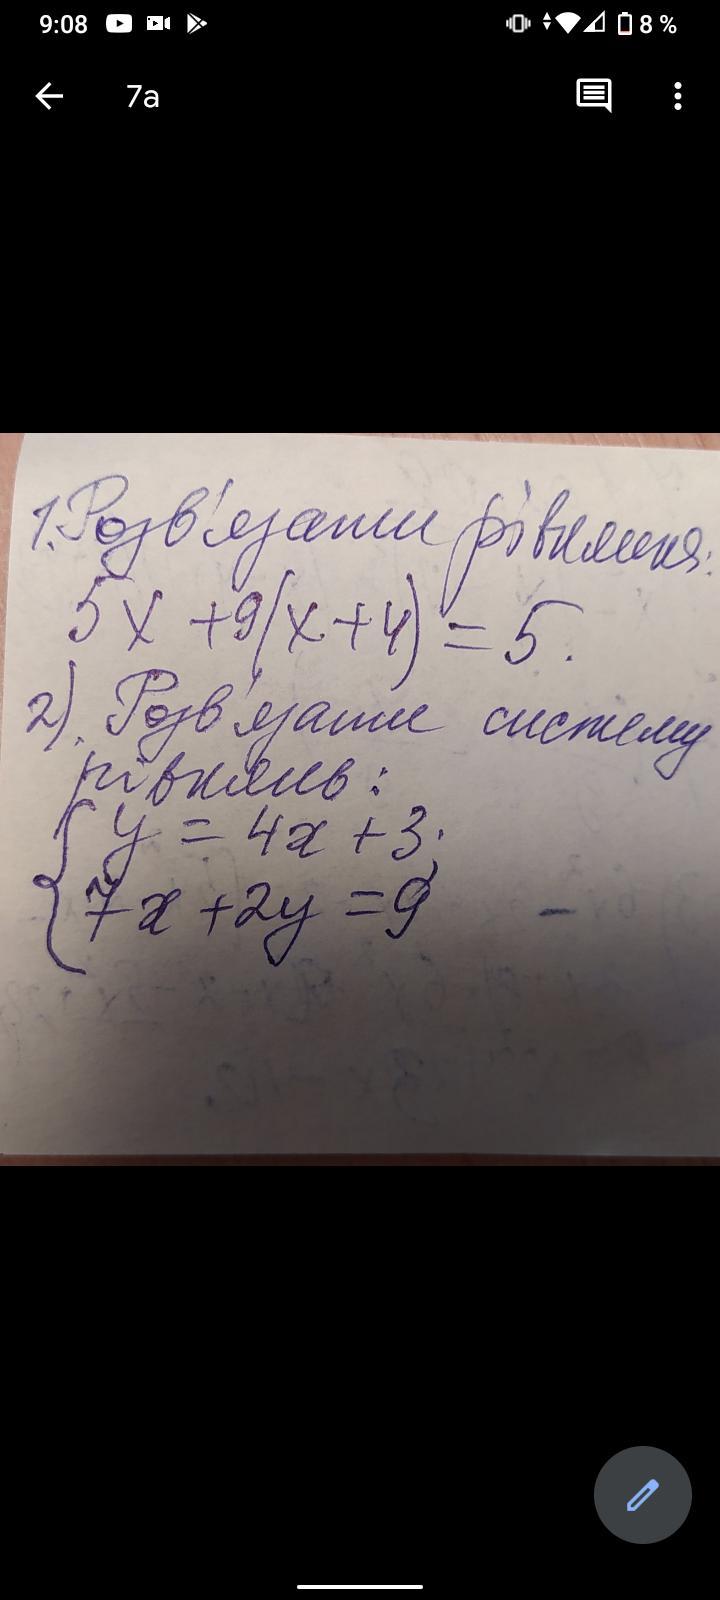 9:08
8 %
7а
1. Розв'язати рівняння:
5x + 9(x + 4) = 5.
2). Розв'язати систему
рівнянь:
y = 4x + 3;
7x + 2y = 9